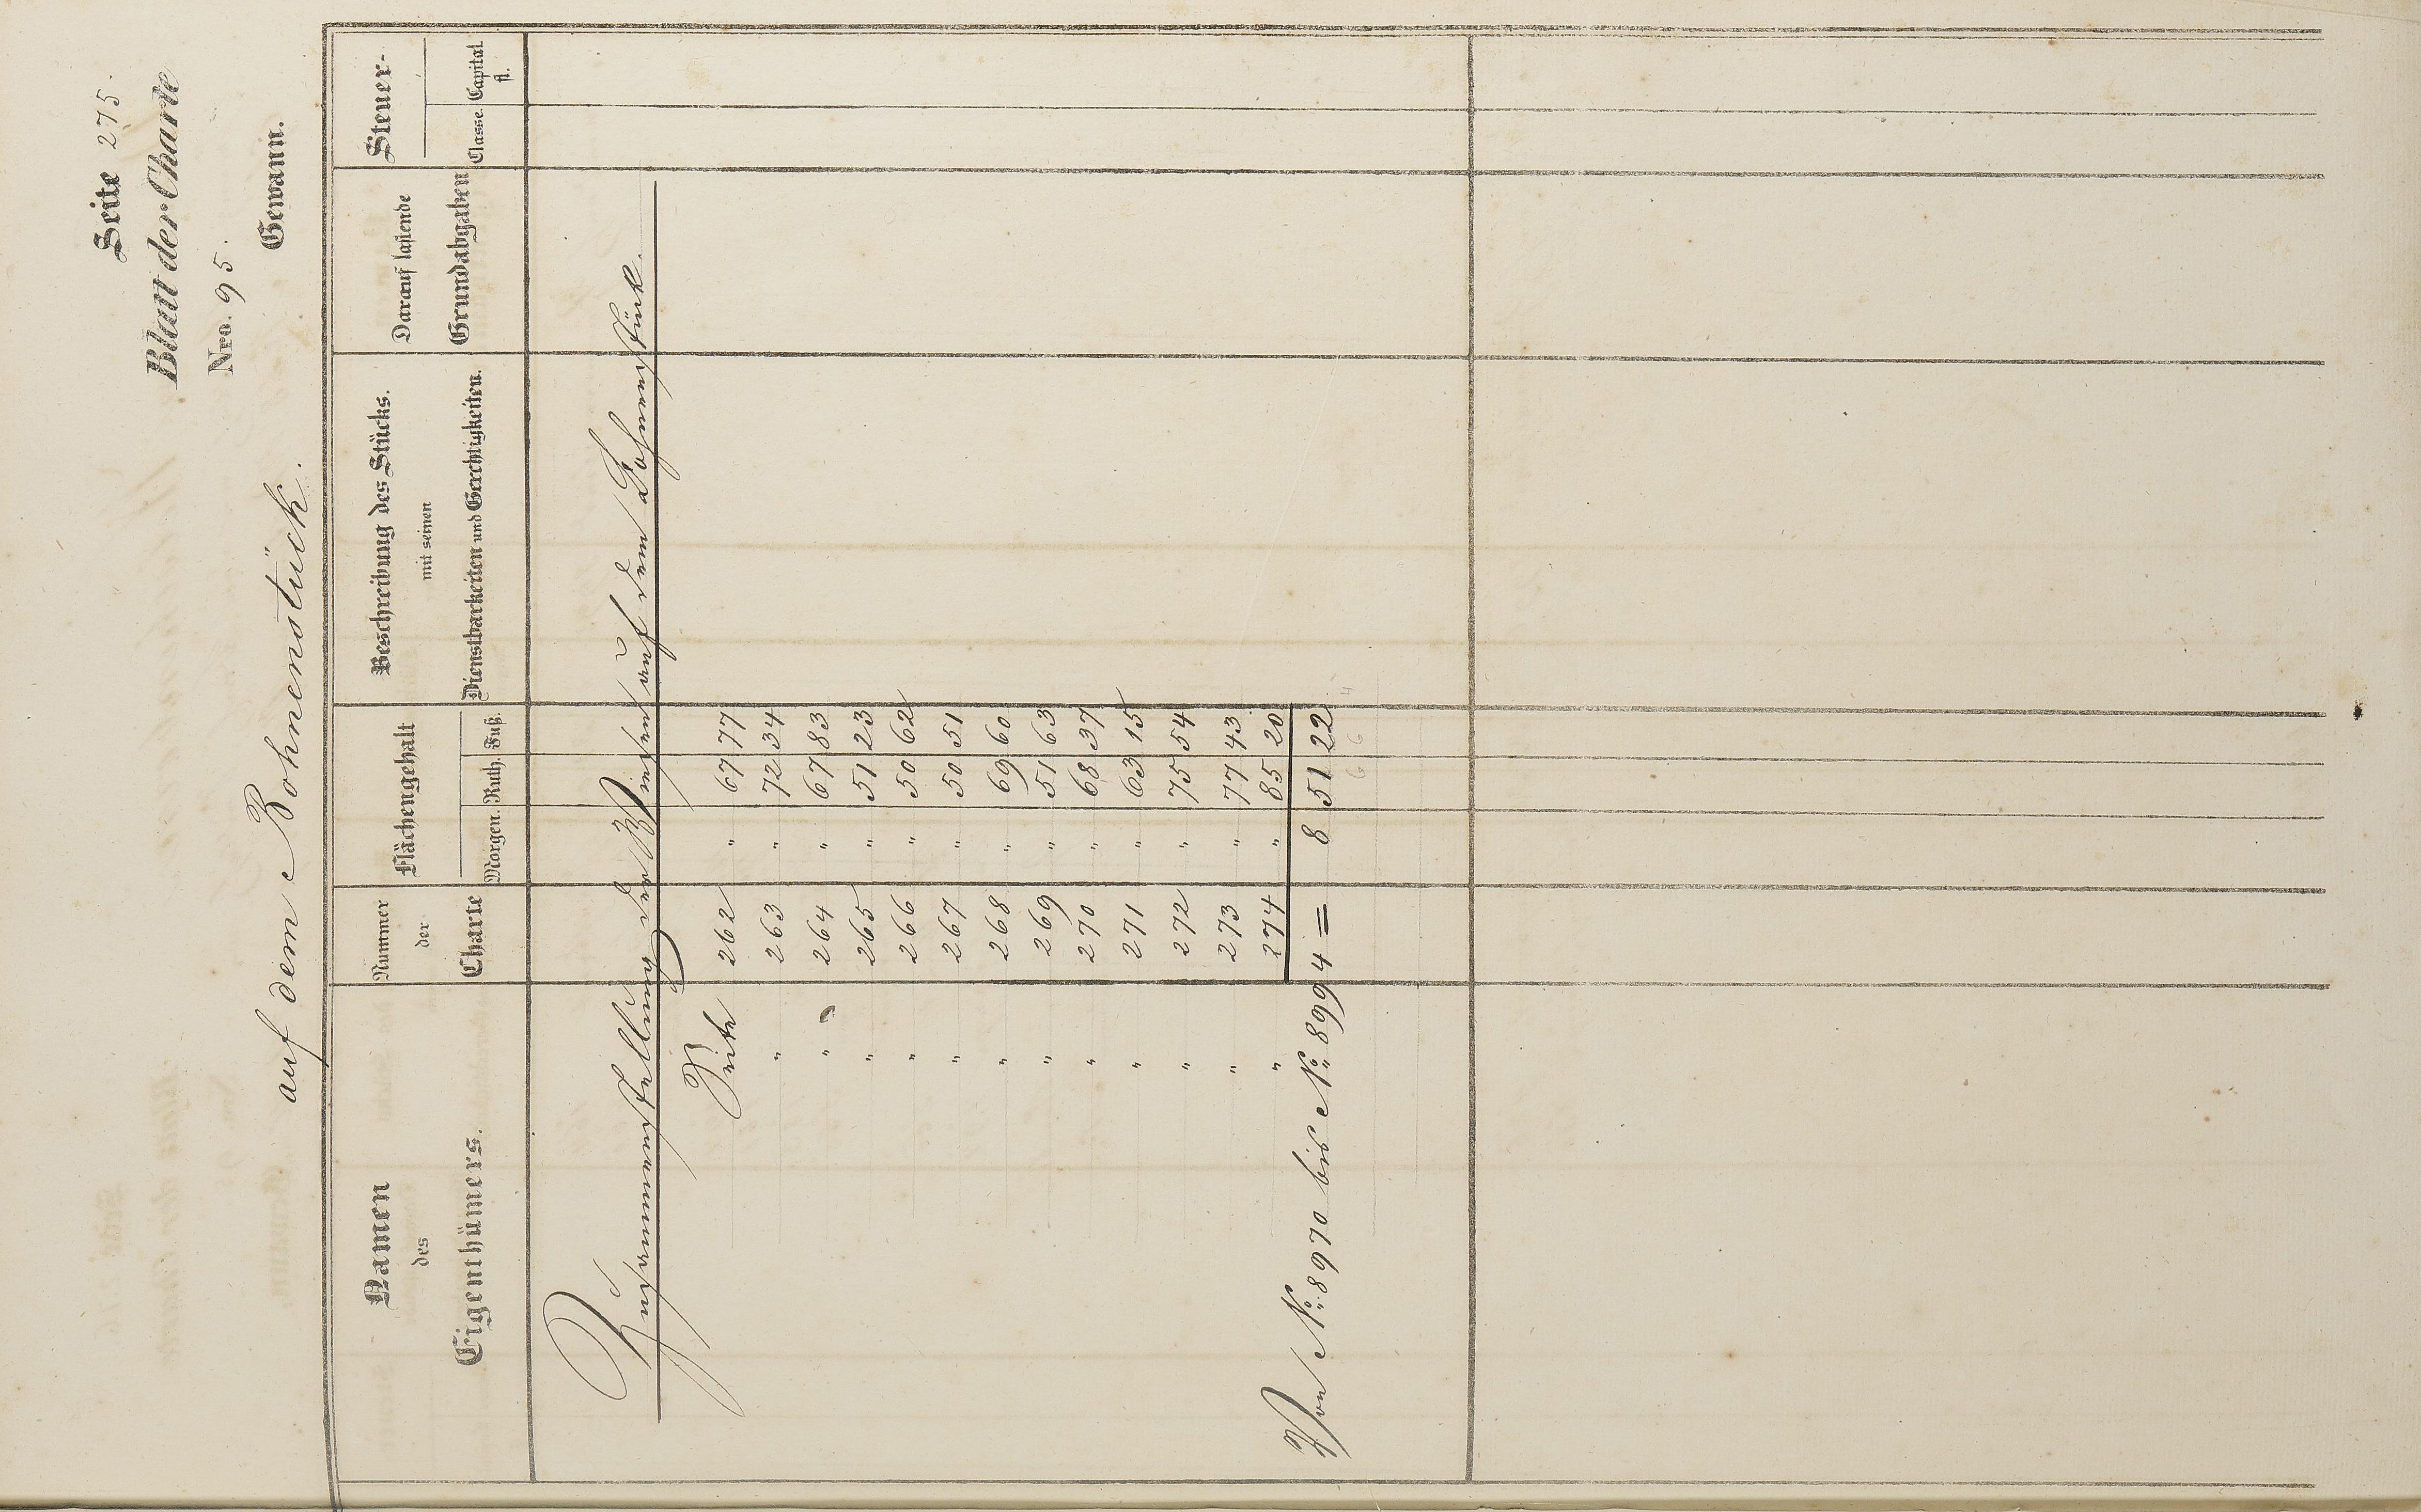 Seite 275.
Blatt der Charte
Nro. 95.
auf dem Bohnenstück. Gewann.
Namen des Eigenthümers. Nummer der Charte Flächengehalt Morgen. Ruth. Fuß. Beschreibung des Stücks. mit seinen Dienstbarkeiten und Gerechtigkeiten. Darauf lastende Grundabgaben Steuer- Classe. Capital fl.
Zusammenstellung der Wiesen auf dem Bohnenstück.
Seite 262 " 67 77
" 263 " 72 34
" 264 " 67 83
" 265 " 51 23
" 266 " 50 62
" 267 " 50 51
" 268 " 69 60
" 269 " 51 63
" 270 " 68 37
" 271 " 63 15
" 272 " 75 54
" 273 " 77 43
" 274 " 85 20
Von No. 8970 bis No. 8994 = 8 51 22